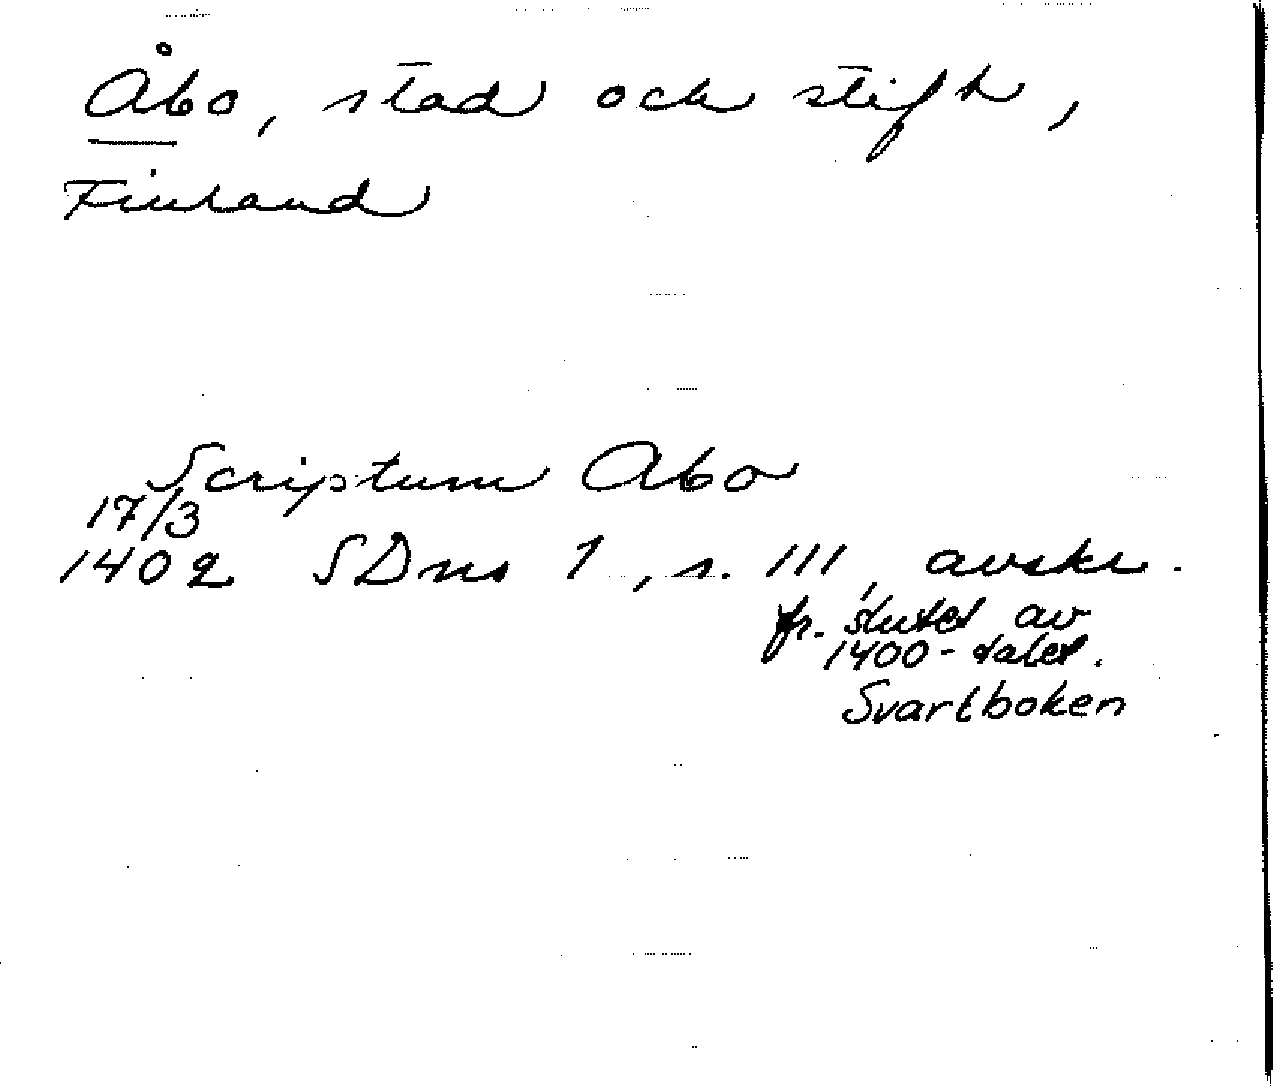 Åbo, stad och stift,
Finland
Scriptum Abo
17/3
1402 SDns 1, s. 111, avskr.
fr. slutet av
1400-talet.
Svartboken